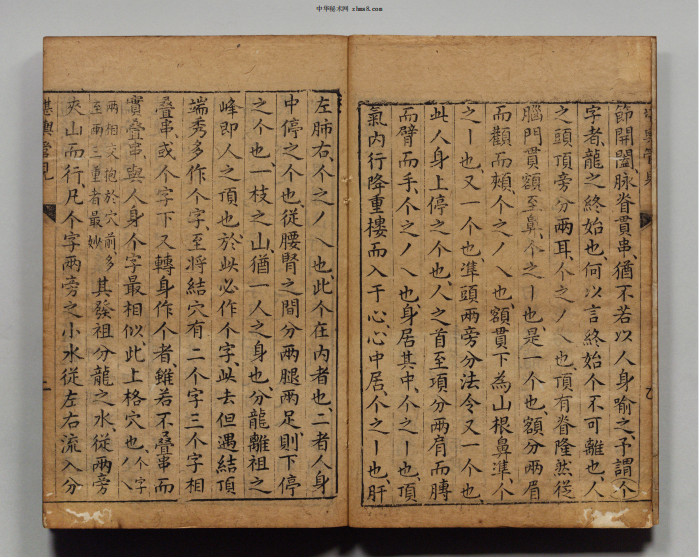 中华秘术网 zhms8.com
節開闔、脉脊貫串、猶不若以人身喻之、予謂个
字者、龍之終始也、何以言終始、个不可離也、人
之頭頂旁分兩耳、个之ノ乀也、頂有脊隆然從
腦門貫額至鼻、个之丨也、是一个也、額分兩眉
而顴而頰、个之ノ乀也、額貫下為山根鼻準、个
之丨也、又一个也、準頭兩旁分法令、又一个也、
此人身上停之个也、人之首至項分兩肩而膊
而臂而手、个之ノ乀也、身居其中、个之丨也、項
氣內行降重樓而入于心、心中居、个之丨也、肝
左肺右、个之ノ乀也、此个在內者也、二者人身
中停之个也、從腰腎之間分兩腿兩足、則下停
之个也、一枝之山、猶一人之身也、分龍離祖之
峰即人之頂也、於此必作个字、此去但遇結頂
端秀多作个字、至將結穴有二个字三个字相
叠串、或个字下又轉身作个者、雖若不叠串而
實叠串、與人身个字最相似、此上格穴也、个字ノ乀
兩相交抱於穴前、多至兩三重者最妙 其發祖分龍之水、從兩旁
夾山而行、凡个字兩旁之小水從左右流入分
堪輿管見